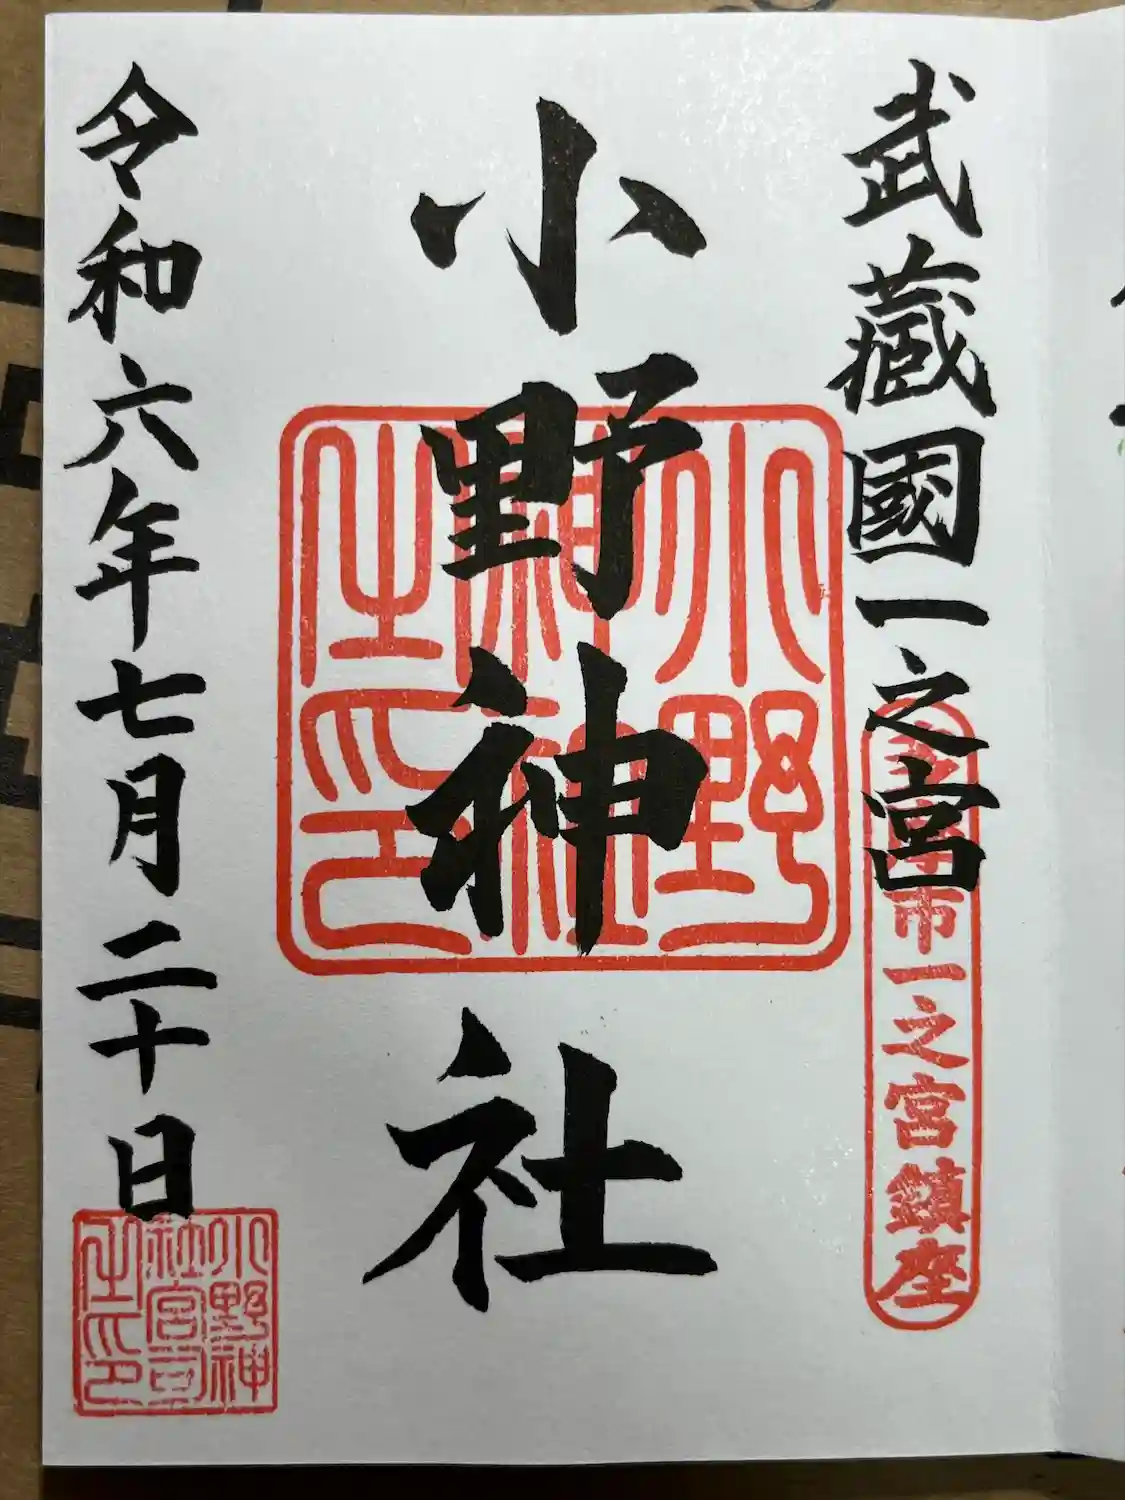 武藏國一之宮
市一之宮鎮座
小野神社
小野神社之印
令和六年七月二十日
小野神社宮司之印